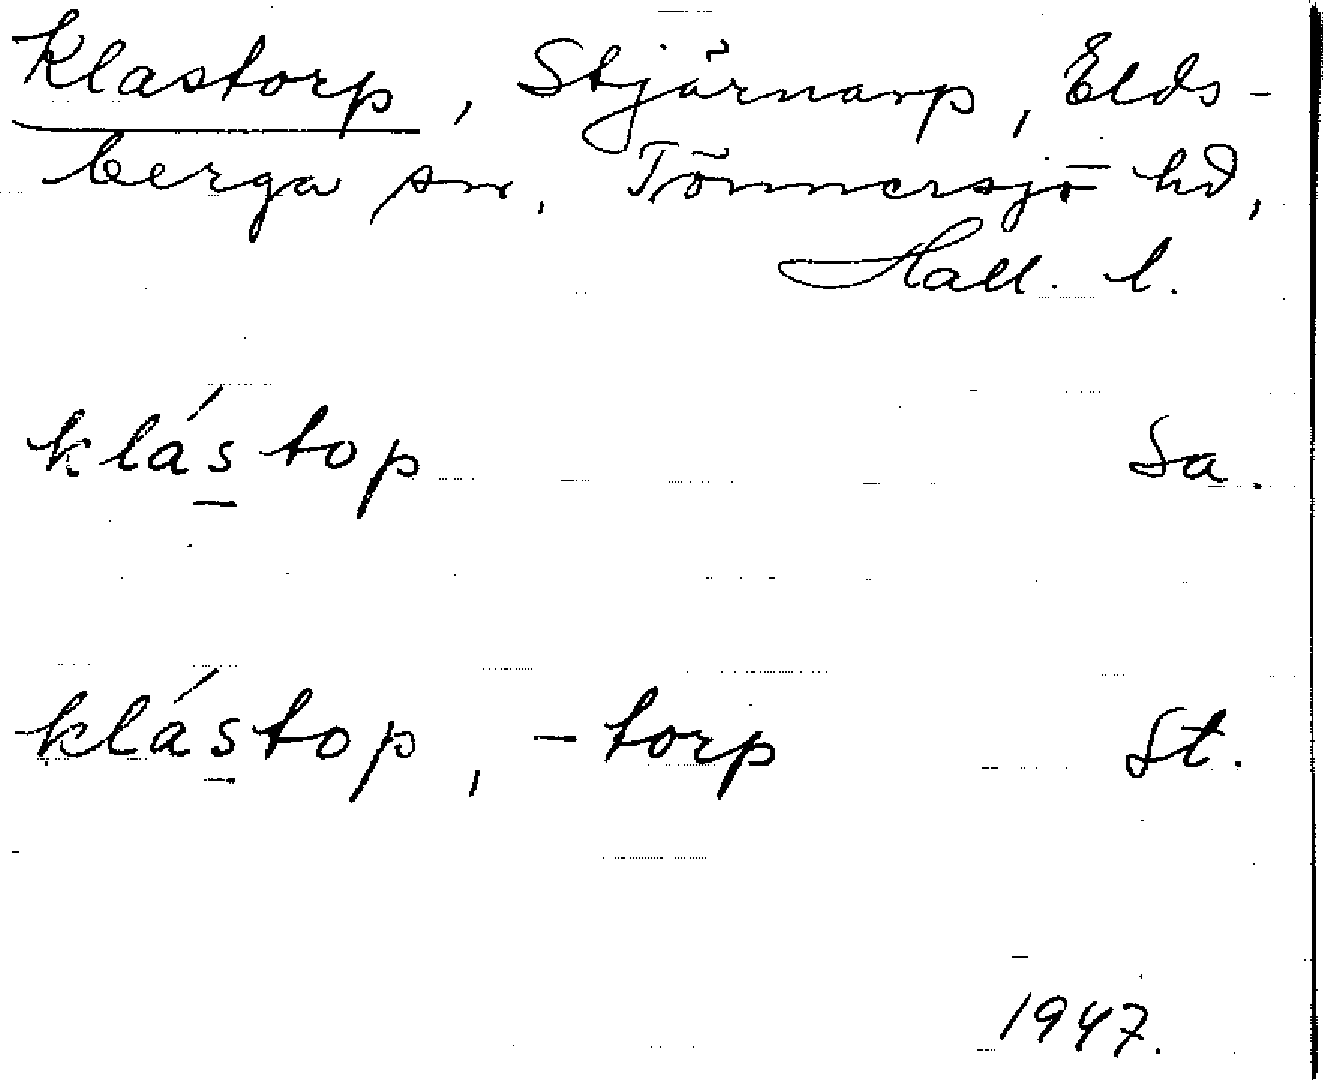 Klastorp, Stjärnarp, Elds-
berga sn, Tönnersjö hd,
Hall. l.
klás̲top Sa.
klás̲top, -torp St.
1947.